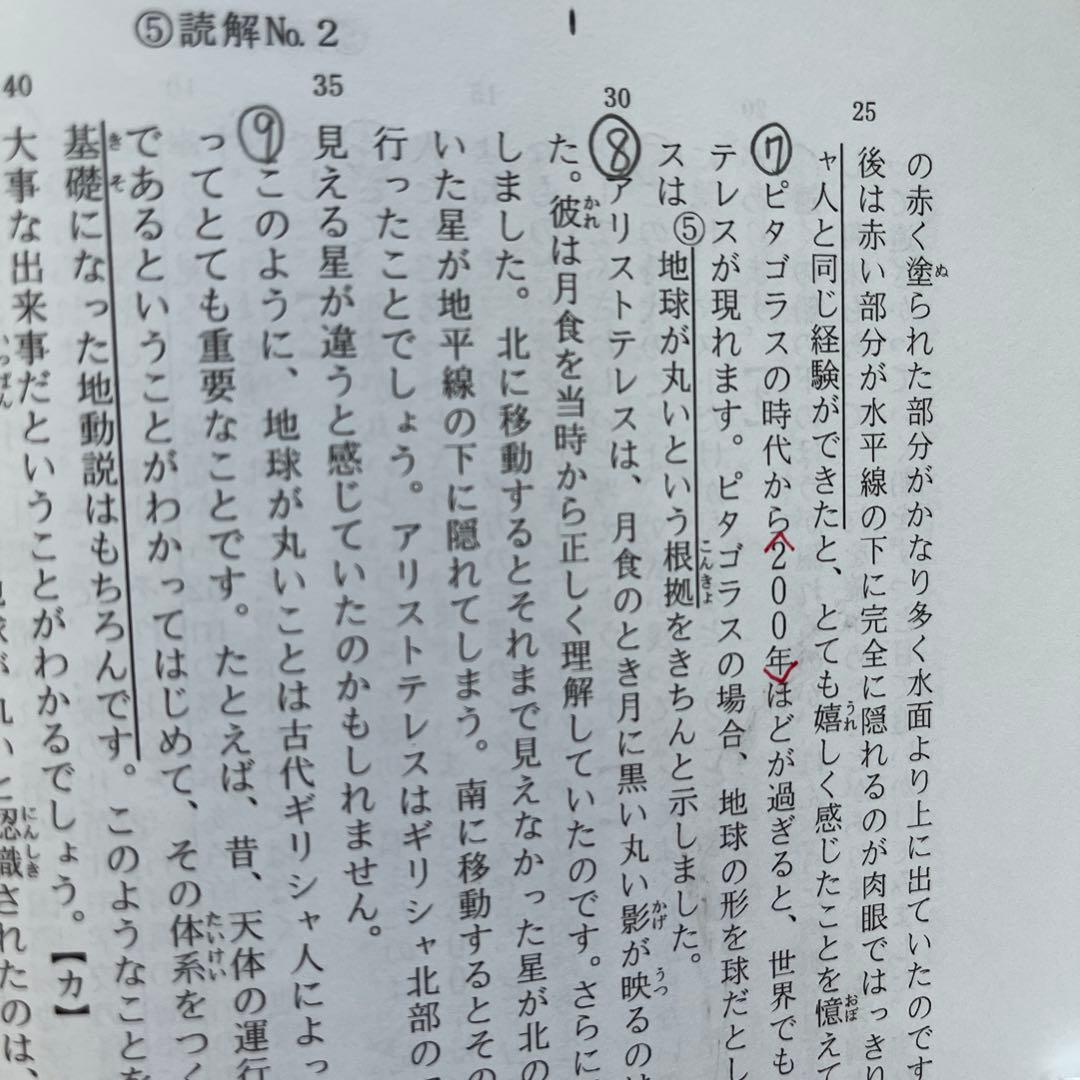 ⑤読解No. 2
25
の赤く塗られた部分がかなり多く水面より上に出ていたのです
後は赤い部分が水平線の下に完全に隠れるのが肉眼ではっきり
ャ人と同じ経験ができたと、とても嬉しく感じたことを憶えて
⑦ピタゴラスの時代から200年ほどが過ぎると、世界でも
テレスが現れます。ピタゴラスの場合、地球の形を球だとし
スは⑤地球が丸いという根拠をきちんと示しました。
30
⑧アリストテレスは、月食のとき月に黒い丸い影が映るのは
た。彼は月食を当時から正しく理解していたのです。さらに
しました。北に移動するとそれまで見えなかった星が北の
いた星が地平線の下に隠れてしまう。南に移動するとその
行ったことでしょう。アリストテレスはギリシャ北部の
35
見える星が違うと感じていたのかもしれません。
⑨このように、地球が丸いことは古代ギリシャ人によっ
ってとても重要なことです。たとえば、昔、天体の運行
であるということがわかってはじめて、その体系をつく
基礎になった地動説はもちろんです。このようなことを
40
大事な出来事だということがわかるでしょう。【カ】
認識されたのは、